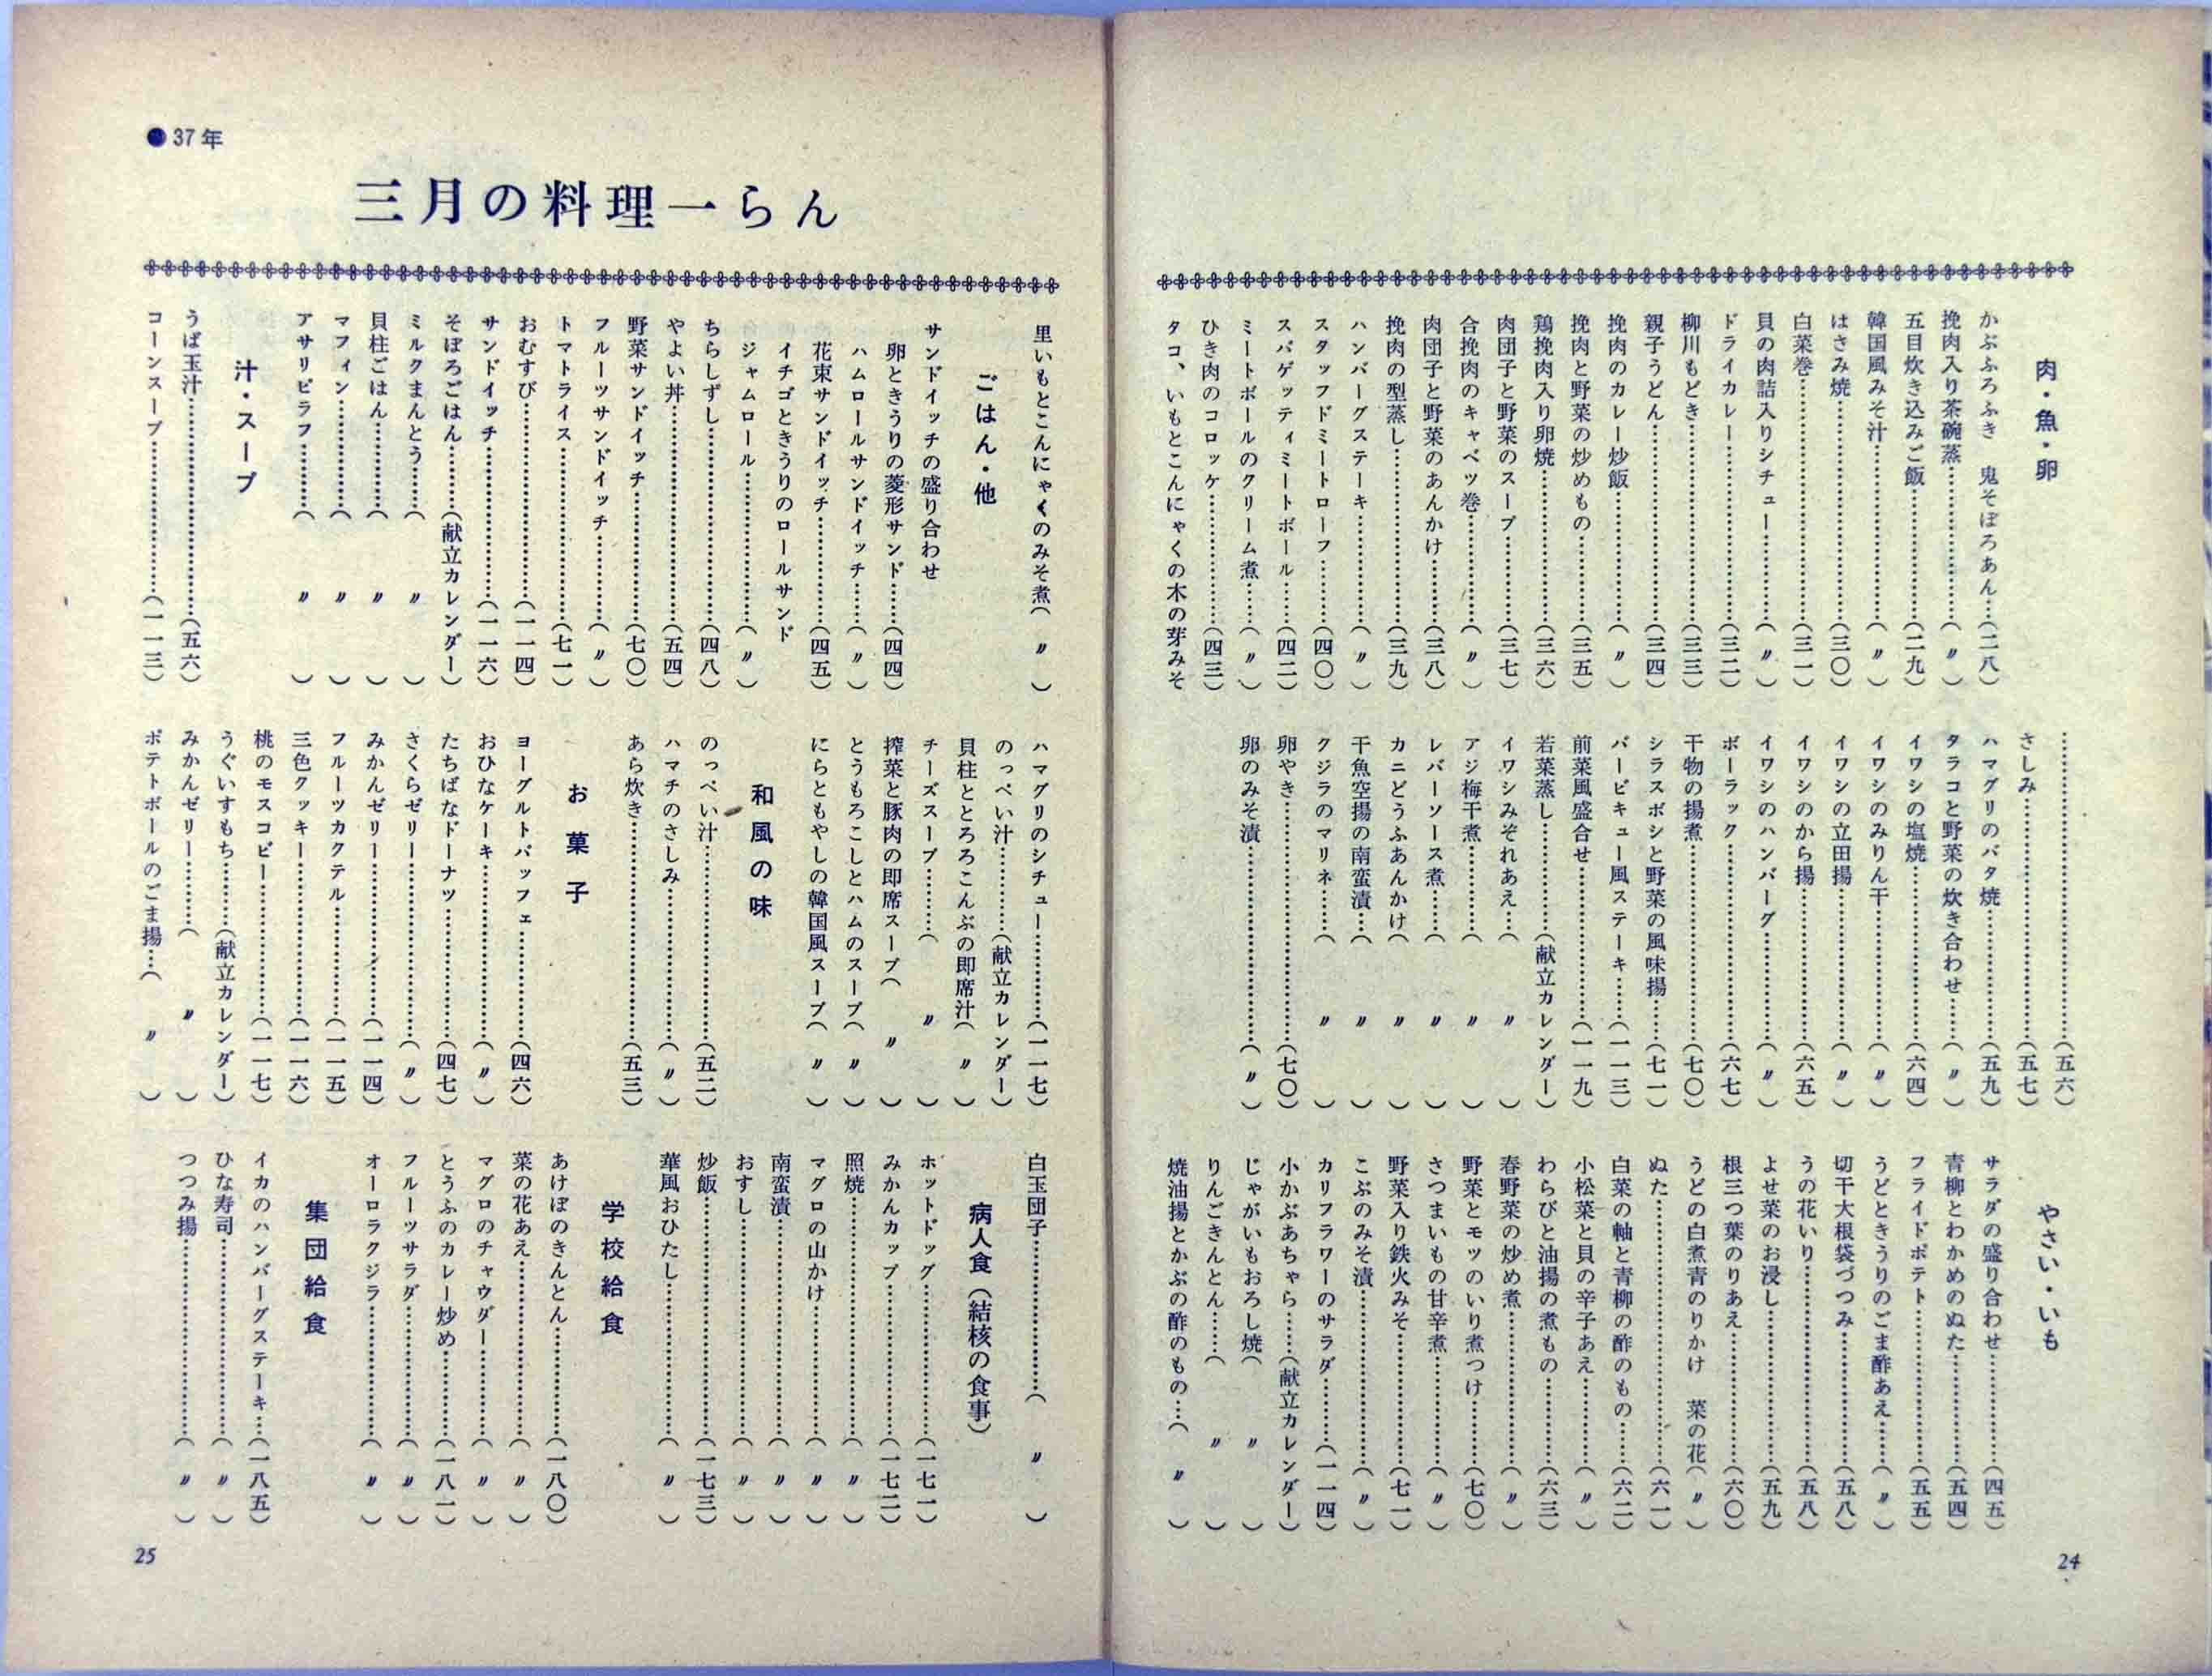 ●37年
三月の料理一らん
肉・魚・卵
かぶふろふき 鬼そぼろあん…(二八)
挽肉入り茶碗蒸…………(〃)
五目炊き込みご飯…………(二九)
韓国風みそ汁…………(〃)
はさみ焼…………(三〇)
白菜巻…………(三一)
貝の肉詰入りシチュー…………(〃)
ドライカレー…………(三二)
柳川もどき…………(三三)
親子うどん…………(三四)
挽肉のカレー炒飯…………(〃)
挽肉と野菜の炒めもの…………(三五)
鶏挽肉入り卵焼…………(三六)
肉団子と野菜のスープ…………(三七)
合挽肉のキャベツ巻…………(〃)
肉団子と野菜のあんかけ………(三八)
挽肉の型蒸し…………(三九)
ハンバーグステーキ…………(〃)
スタッフドミートローフ………(四〇)
スパゲッティミートボール……(四二)
ミートボールのクリーム煮……(〃)
ひき肉のコロッケ…………(四三)
タコ、いもとこんにゃくの木の芽みそ
…………(五六)
さしみ…………(五七)
ハマグリのバタ焼…………(五九)
タラコと野菜の炊き合わせ……(〃)
イワシの塩焼…………(六四)
イワシのみりん干…………(〃)
イワシの立田揚…………(〃)
イワシのから揚…………(六五)
イワシのハンバーグ…………(〃)
ボーラック…………(六七)
干物の揚煮…………(七〇)
シラスボシと野菜の風味揚……(七一)
バービキュー風ステーキ……(一一三)
前菜風盛合せ…………(一一九)
若菜蒸し…………(献立カレンダー)
イワシみぞれあえ……(〃)
アジ梅干煮…………(〃)
レバーソース煮……(〃)
カニどうふあんかけ(〃)
干魚空揚の南蛮漬…(〃)
クジラのマリネ……(〃)
卵やき…………(七〇)
卵のみそ漬…………(〃)
やさい・いも
サラダの盛り合わせ…………(四五)
青柳とわかめのぬた…………(五四)
フライドポテト…………(五五)
うどときうりのごま酢あえ……(〃)
切干大根袋づつみ…………(五八)
うの花いり…………(五八)
よせ菜のお浸し…………(五九)
根三つ葉のりあえ…………(六〇)
うどの白煮青のりかけ 菜の花(〃)
ぬた…………(六一)
白菜の軸と青柳の酢のもの……(六二)
小松菜と貝の辛子あえ…………(〃)
わらびと油揚の煮もの…………(六三)
春野菜の炒め煮…………(〃)
野菜とモツのいり煮つけ………(七〇)
さつまいもの甘辛煮…………(〃)
野菜入り鉄火みそ…………(七一)
こぶのみそ漬…………(〃)
カリフラワーのサラダ………(一一四)
小かぶあちゃら……(献立カレンダー)
じゃがいもおろし焼(〃)
りんごきんとん……(〃)
焼油揚とかぶの酢のもの…(〃)
24
里いもとこんにゃくのみそ煮(〃)
ごはん・他
サンドイッチの盛り合わせ
卵ときうりの菱形サンド……(四四)
ハムロールサンドイッチ……(〃)
花束サンドイッチ…………(四五)
イチゴときうりのロールサンド
ジャムロール…………(〃)
ちらしずし…………(四八)
やよい丼…………(五四)
野菜サンドイッチ…………(七〇)
フルーツサンドイッチ…………(〃)
トマトライス…………(七一)
おむすび…………(一一四)
サンドイッチ…………(一一六)
そぼろごはん………(献立カレンダー)
ミルクまんとう……(〃)
貝柱ごはん…………(〃)
マフィン…………(〃)
アサリピラフ………(〃)
汁・スープ
うば玉汁…………(五六)
コーンスープ…………(一一三)
ハマグリのシチュー…………(一一七)
のっぺい汁…………(献立カレンダー)
貝柱ととろろこんぶの即席汁(〃)
チーズスープ………(〃)
搾菜と豚肉の即席スープ(〃)
とうもろこしとハムのスープ(〃)
にらともやしの韓国風スープ(〃)
和風の味
のっぺい汁…………(五二)
ハマチのさしみ…………(〃)
あら炊き…………(五三)
お菓子
ヨーグルトパッフェ…………(四六)
おひなケーキ…………(〃)
たちばなドーナツ…………(四七)
さくらゼリー…………(〃)
みかんゼリー…………(一一四)
フルーツカクテル…………(一一五)
三色クッキー…………(一一六)
桃のモスコビー…………(一一七)
うぐいすもち………(献立カレンダー)
みかんゼリー………(〃)
ポテトボールのごま揚…(〃)
白玉団子…………(〃)
病人食(結核の食事)
ホットドッグ…………(一七一)
みかんカップ…………(一七二)
照焼…………(〃)
マグロの山かけ…………(〃)
南蛮漬…………(〃)
おすし…………(〃)
炒飯…………(一七三)
華風おひたし…………(〃)
学校給食
あけぼのきんとん…………(一八〇)
菜の花あえ…………(〃)
マグロのチャウダー…………(〃)
とうふのカレー炒め…………(一八一)
フルーツサラダ…………(〃)
オーロラクジラ…………(〃)
集団給食
イカのハンバーグステーキ…(一八五)
ひな寿司…………(〃)
つつみ揚…………(〃)
25